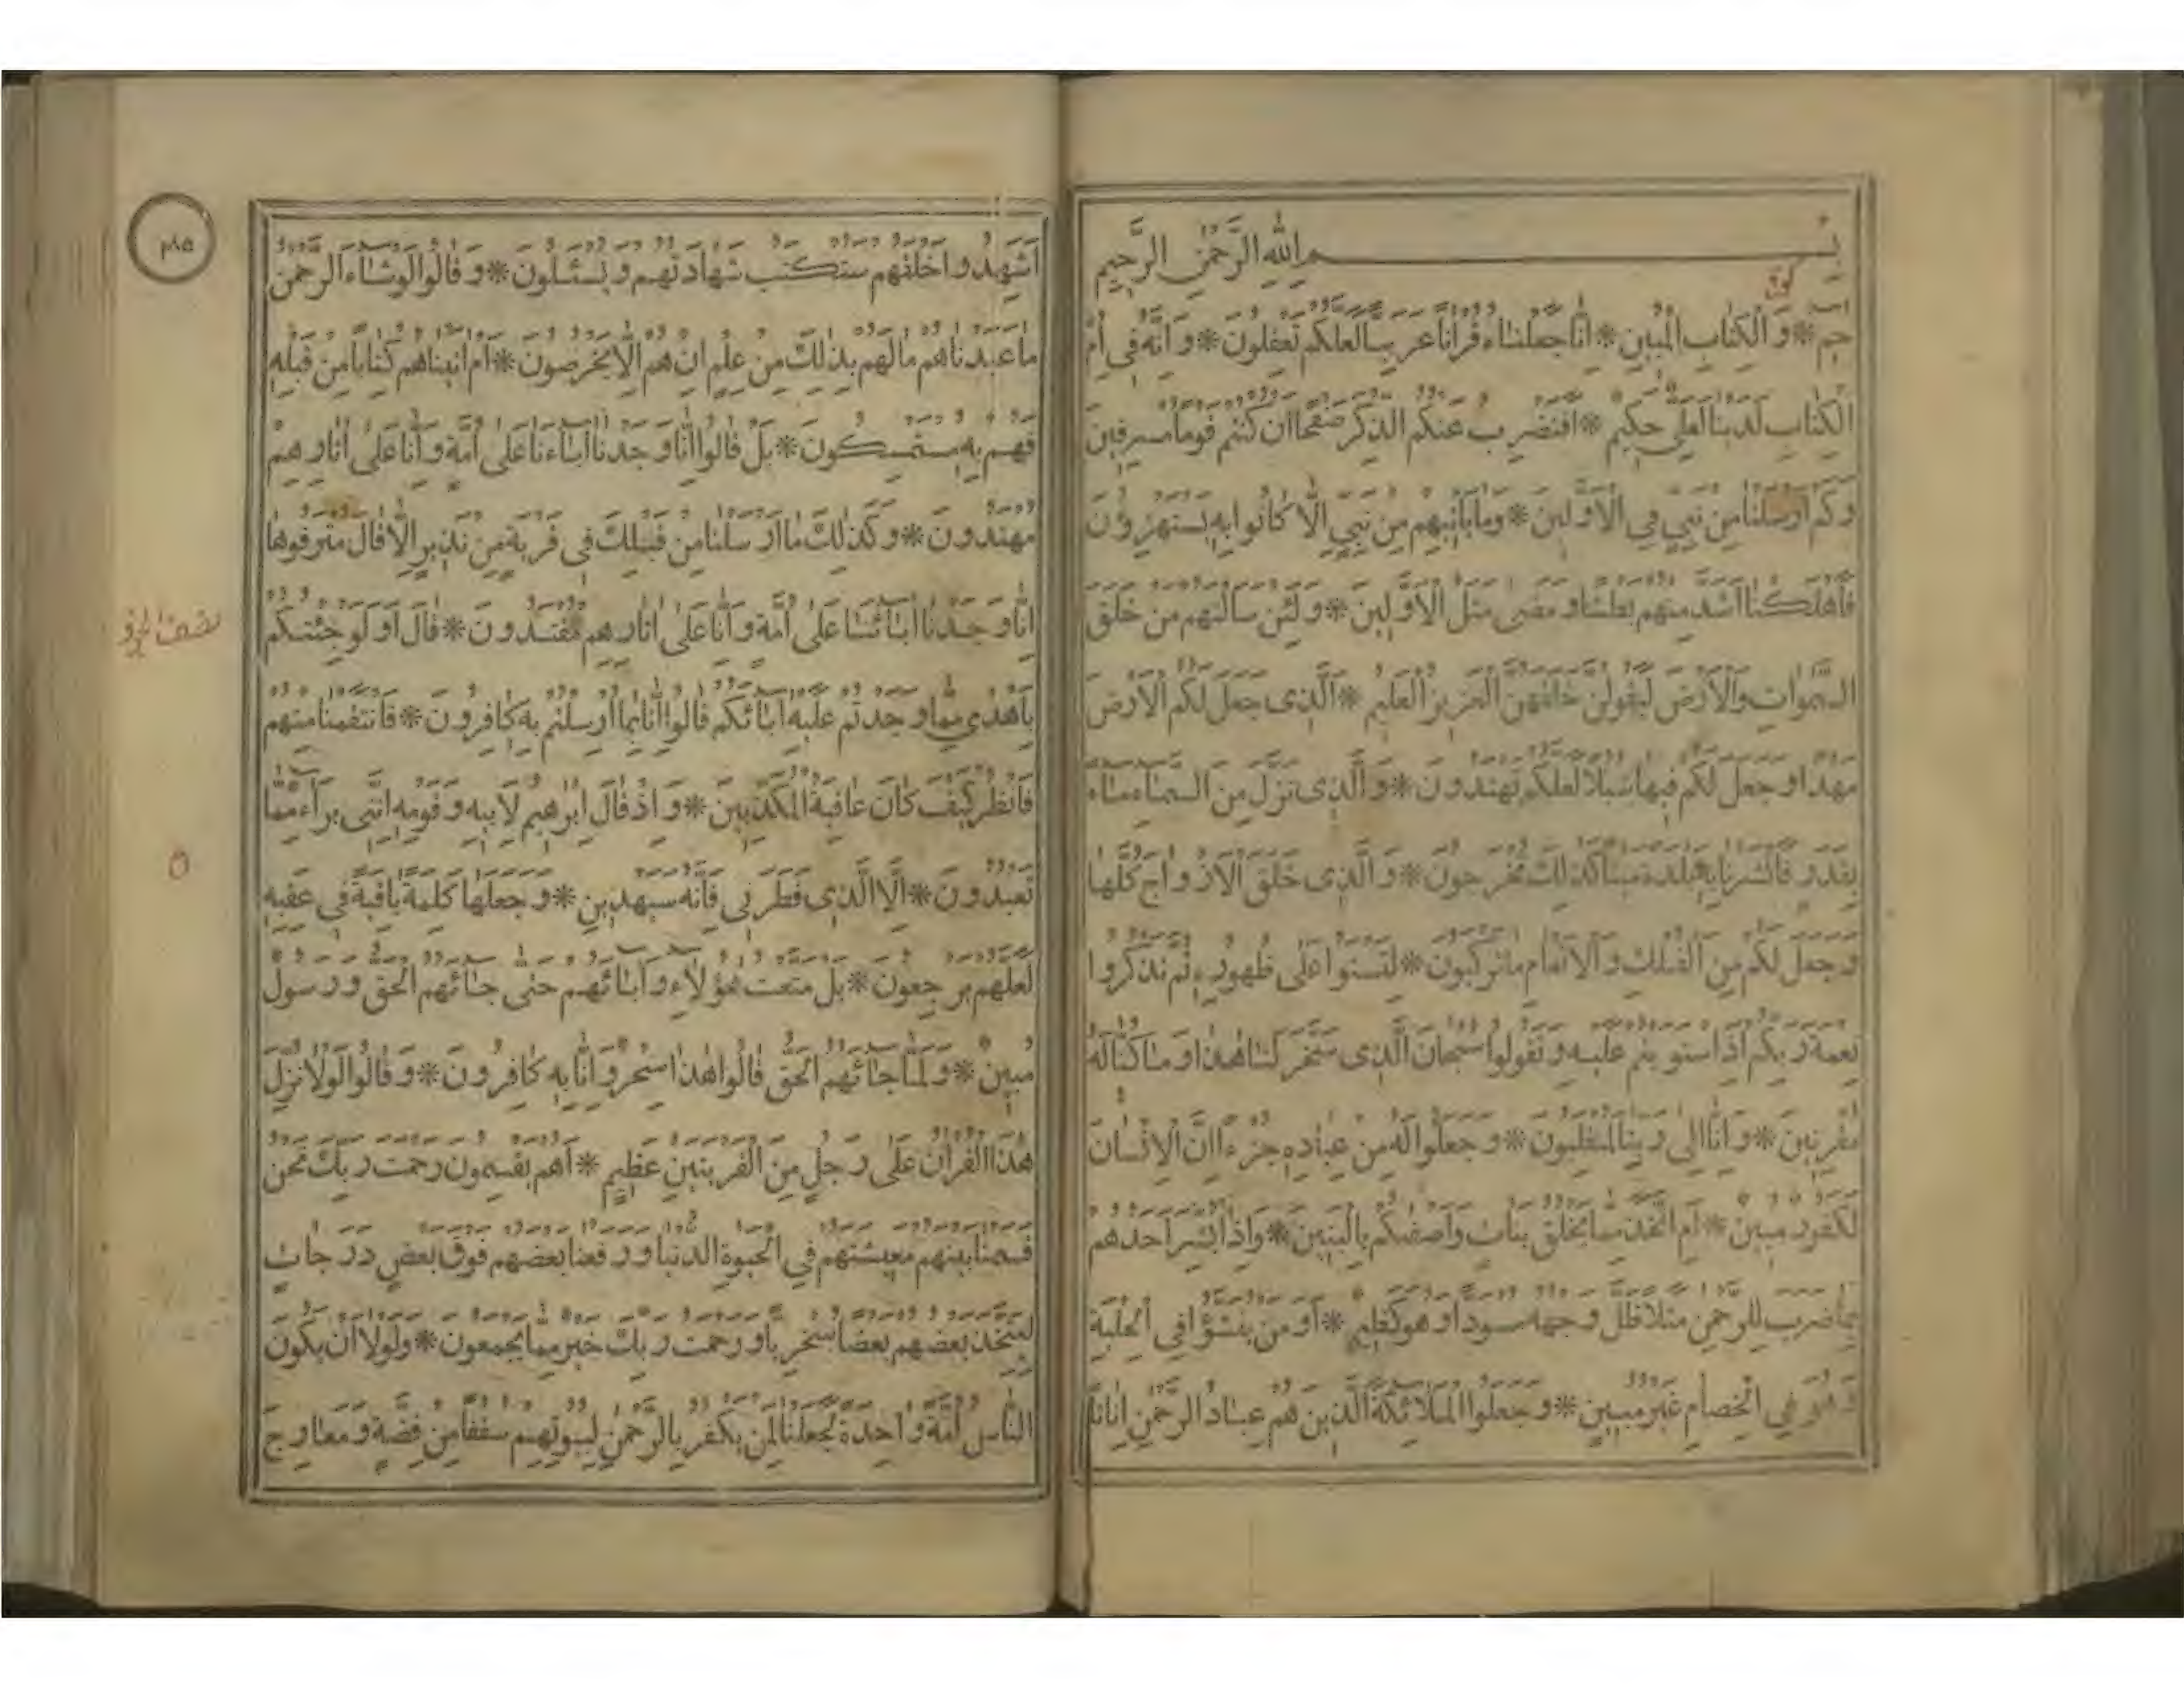 بِسْمِ اللهِ الرَّحْمٰنِ الرَّحِيمِ
كوفى
حٰم * وَالْكِتَابِ الْمُبِينِ * اِنَّا جَعَلْنَاهُ قُرْاٰنًا عَرَبِيًّا لَعَلَّكُمْ تَعْقِلُونَ * وَاِنَّهُ فِى اُمِّ
الْكِتَابِ لَدَيْنَا لَعَلِىٌّ حَكِيمٌ * اَفَنَضْرِبُ عَنْكُمُ الذِّكْرَ صَفْحًا اَنْ كُنْتُمْ قَوْمًا مُسْرِفِينَ
وَكَمْ اَرْسَلْنَا مِنْ نَبِيٍّ فِي الْاَوَّلِينَ * وَمَا يَأْتِيهِمْ مِنْ نَبِيٍّ اِلَّا كَانُوا بِهِ يَسْتَهْزِؤُنَ
فَاَهْلَكْنَا اَشَدَّ مِنْهُمْ بَطْشًا وَمَضٰى مَثَلُ الْاَوَّلِينَ * وَلَئِنْ سَاَلْتَهُمْ مَنْ خَلَقَ
السَّمٰوَاتِ وَالْاَرْضَ لَيَقُولُنَّ خَلَقَهُنَّ الْعَزِيزُ الْعَلِيمُ * اَلَّذِى جَعَلَ لَكُمُ الْاَرْضَ
مَهْدًا وَجَعَلَ لَكُمْ فِيهَا سُبُلًا لَعَلَّكُمْ تَهْتَدُونَ * وَالَّذِى نَزَّلَ مِنَ السَّمَاءِ مَاءً
بِقَدَرٍ فَاَنْشَرْنَا بِهِ بَلْدَةً مَيْتًا كَذٰلِكَ تُخْرَجُونَ * وَالَّذِى خَلَقَ الْاَزْوَاجَ كُلَّهَا
وَجَعَلَ لَكُمْ مِنَ الْفُلْكِ وَالْاَنْعَامِ مَا تَرْكَبُونَ * لِتَسْتَوُا عَلٰى ظُهُورِهِ ثُمَّ تَذْكُرُوا
نِعْمَةَ رَبِّكُمْ اِذَا اسْتَوَيْتُمْ عَلَيْهِ وَتَقُولُوا سُبْحَانَ الَّذِى سَخَّرَ لَنَا هٰذَا وَمَا كُنَّا لَهُ
مُقْرِنِينَ * وَاِنَّا اِلٰى رَبِّنَا لَمُنْقَلِبُونَ * وَجَعَلُوا لَهُ مِنْ عِبَادِهِ جُزْءًا اِنَّ الْاِنْسَانَ
لَكَفُورٌ مُبِينٌ * اَمِ اتَّخَذَ مِمَّا يَخْلُقُ بَنَاتٍ وَاَصْفٰيكُمْ بِالْبَنِينَ * وَاِذَا بُشِّرَ اَحَدُهُمْ
بِمَا ضَرَبَ لِلرَّحْمٰنِ مَثَلًا ظَلَّ وَجْهُهُ مُسْوَدًّا وَهُوَ كَظِيمٌ * اَوَمَنْ يُنَشَّؤُا فِي الْحِلْيَةِ
وَهُوَ فِي الْخِصَامِ غَيْرُ مُبِينٍ * وَجَعَلُوا الْمَلَائِكَةَ الَّذِينَ هُمْ عِبَادُ الرَّحْمٰنِ اِنَاثًا
اَشَهِدُوا خَلْقَهُمْ سَتُكْتَبُ شَهَادَتُهُمْ وَيُسْئَلُونَ * وَقَالُوا لَوْ شَاءَ الرَّحْمٰنُ
مَا عَبَدْنَاهُمْ مَا لَهُمْ بِذٰلِكَ مِنْ عِلْمٍ اِنْ هُمْ اِلَّا يَخْرُصُونَ * اَمْ اٰتَيْنَاهُمْ كِتَابًا مِنْ قَبْلِهِ
فَهُمْ بِهِ مُسْتَمْسِكُونَ * بَلْ قَالُوا اِنَّا وَجَدْنَا اٰبَاءَنَا عَلٰى اُمَّةٍ وَاِنَّا عَلٰى اٰثَارِهِمْ
مُهْتَدُونَ * وَكَذٰلِكَ مَا اَرْسَلْنَا مِنْ قَبْلِكَ فِى قَرْيَةٍ مِنْ نَذِيرٍ اِلَّا قَالَ مُتْرَفُوهَا
اِنَّا وَجَدْنَا اٰبَائَنَا عَلٰى اُمَّةٍ وَاِنَّا عَلٰى اٰثَارِهِمْ مُقْتَدُونَ * قَالَ اَوَلَوْ جِئْتُكُمْ
بِاَهْدٰى مِمَّا وَجَدْتُمْ عَلَيْهِ اٰبَائَكُمْ قَالُوا اِنَّا بِمَا اُرْسِلْتُمْ بِهِ كَافِرُونَ * فَانْتَقَمْنَا مِنْهُمْ
فَانْظُرْ كَيْفَ كَانَ عَاقِبَةُ الْمُكَذِّبِينَ * وَاِذْ قَالَ اِبْرٰهِيمُ لِاَبِيهِ وَقَوْمِهِ اِنَّنِى بَرَاءٌ مِمَّا
تَعْبُدُونَ * اِلَّا الَّذِى فَطَرَنِى فَاِنَّهُ سَيَهْدِينِ * وَجَعَلَهَا كَلِمَةً بَاقِيَةً فِى عَقِبِهِ
لَعَلَّهُمْ يَرْجِعُونَ * بَلْ مَتَّعْتُ هٰؤُلَاءِ وَاٰبَائَهُمْ حَتّٰى جَائَهُمُ الْحَقُّ وَرَسُولٌ
مُبِينٌ * وَلَمَّا جَائَهُمُ الْحَقُّ قَالُوا هٰذَا سِحْرٌ وَاِنَّا بِهِ كَافِرُونَ * وَقَالُوا لَوْلَا نُزِّلَ
هٰذَا الْقُرْاٰنُ عَلٰى رَجُلٍ مِنَ الْقَرْيَتَيْنِ عَظِيمٍ * اَهُمْ يَقْسِمُونَ رَحْمَتَ رَبِّكَ نَحْنُ
قَسَمْنَا بَيْنَهُمْ مَعِيشَتَهُمْ فِي الْحَيٰوةِ الدُّنْيَا وَرَفَعْنَا بَعْضَهُمْ فَوْقَ بَعْضٍ دَرَجَاتٍ
لِيَتَّخِذَ بَعْضُهُمْ بَعْضًا سُخْرِيًّا وَرَحْمَتُ رَبِّكَ خَيْرٌ مِمَّا يَجْمَعُونَ * وَلَوْلَا اَنْ يَكُونَ
النَّاسُ اُمَّةً وَاحِدَةً لَجَعَلْنَا لِمَنْ يَكْفُرُ بِالرَّحْمٰنِ لِبُيُوتِهِمْ سُقُفًا مِنْ فِضَّةٍ وَمَعَارِجَ
نصف الجزؤ